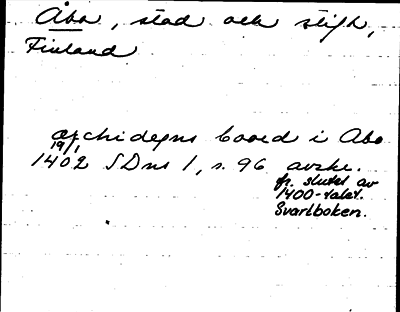 Åbo, stad och stift,
Finland
archidegns booed i Abo
19/1
1402 SDns 1, s. 96 avskr.
fr. slutet av
1400-talet.
Svartboken.